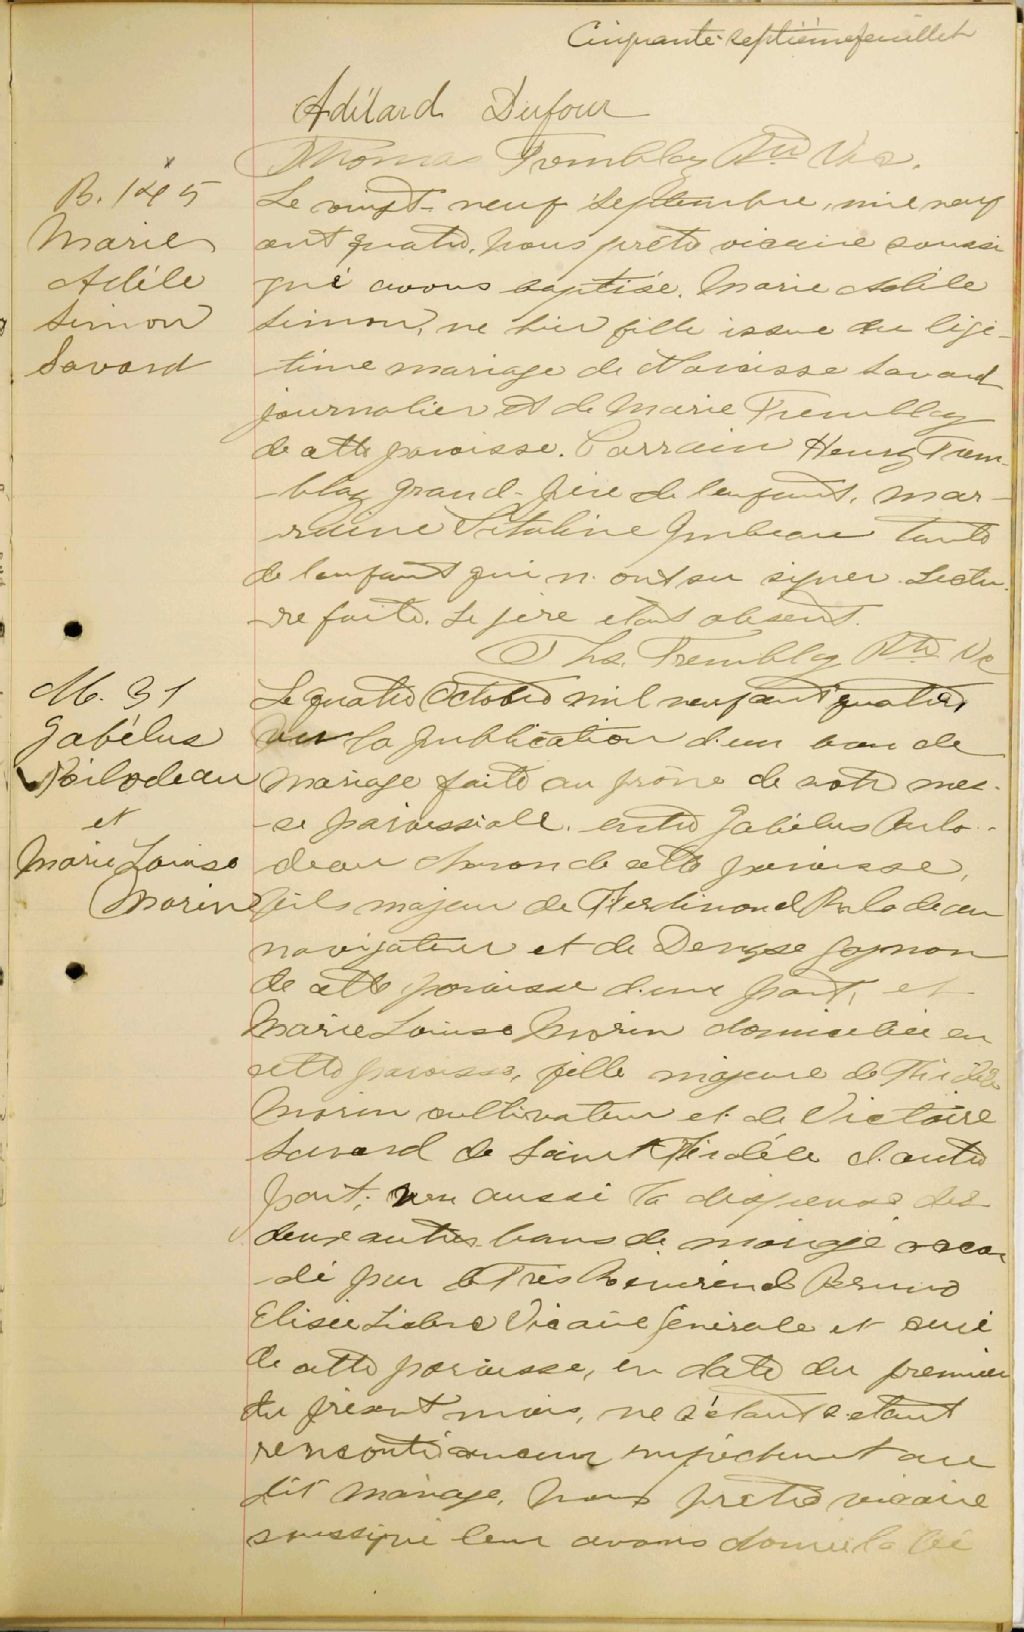 Cinquante-septième feuillet
Adélard Dufour
Thomas Tremblay Ptre Vic.
B. 145
Marie
Adéle
Simon
Savard
Le vingt-neuf Septembre, mil neuf
cent quatre, nous prêtre vicaire soussi
gné avons baptisé. Marie Adéle
Simon, né hier fille issue du légi-
time mariage de Narcisse Savard
journalier et de Marie Tremblay
de cette paroisse. Parrain Henry Trem-
-blay grand-père de l'enfant, mar-
raine Imbeau tante
de l'enfant qui n'ont su signer. Lectu
-re faite. Le père étant absent.
Ths. Tremblay Ptre Vic
M. 31
Gabélus
Poilodeau
et
Marie Louise
Morin
Le quatre Octobre mil neuf cent quatre,
Vu la publication d'un ban de
mariage faite au prône de notre mes-
-se paroissiale. entre Gabélus Pilo-
deau charon de cette paroisse,
fils majeur de Ferdinand Pilodeau
navigateur et de Denyse Gagnon
de cette paroisse d'une part, et
Marie Louise Morin domiciliée en
cette paroisse, fille majeure de Fidèle
Morin cultivateur et de Victoire
Savard de Saint Fidèle d'autre
part; vu aussi la dispense des
deux autres bans de mariage accor
-dé par le Très Révérend Bruno
Elisée Leclerc Vicaire Générale et curé
de cette paroisse, en date du premier
du présent mois, ne s'étant s'étant
rencontré aucun empêchement au
dit mariage, Nous prêtre vicaire
soussigné leur avons donné la bé